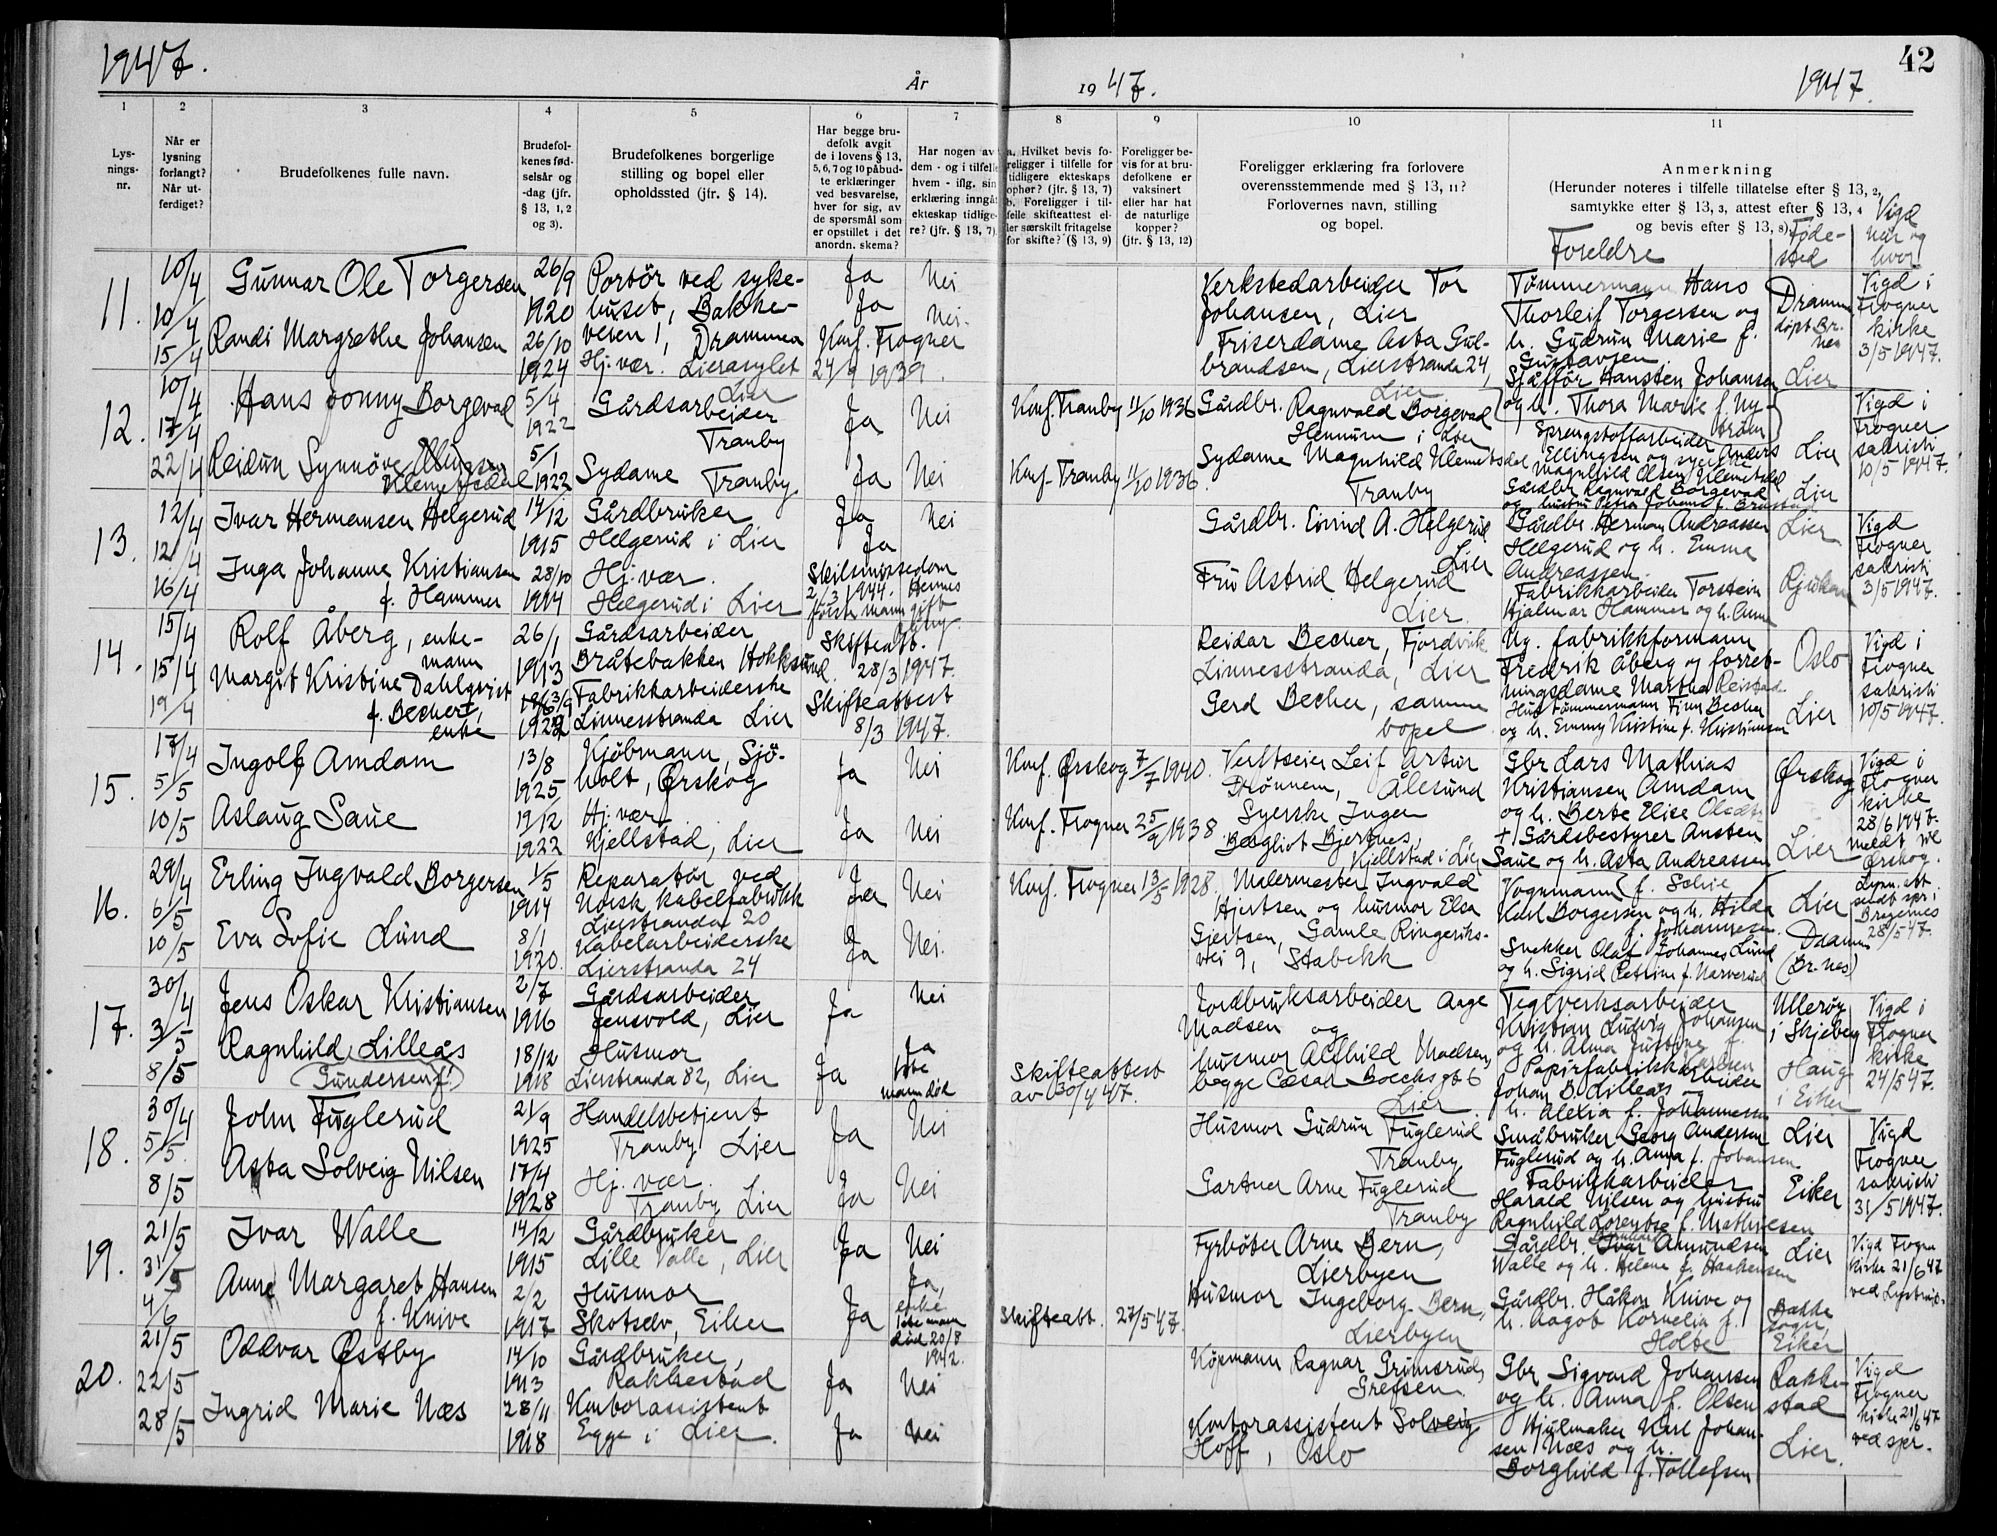 1947.
År
1947.
1947.
42
1
2
3
4
5
6
7
8
9
10
11
Lys-
nings-
nr.
Når er
lysning
forlangt?
Når ut-
ferdiget?
Brudefolkenes fulle navn.
Brudefol-
kenes fød-
selsår og
-dag (jfr.
§ 13, 1, 2
og 3).
Brudefolkenes borgerlige
stilling og bopel eller
opholdssted (jfr. § 14).
Har begge bru-
defolk avgit
de i lovens § 13,
5, 6, 7 og 10 påbud-
te erklæringer
ved besvarelse,
hver for sig, av
de spørsmål som
er opstillet i det
anordn. skema?
Har nogen av
dem - og i tilfelle
hvem - iflg. sin
erklæring inngå
ekteskap tidlige-
re? (jfr. § 13, 7)
a. Hvilket bevis fo-
religger i tilfelle for
tidligere ekteskaps
ophør? (jfr. § 13, 7)
b. Foreligger i til-
felle skifteattest el-
ler særskilt fritagelse
for skifte? (§ 13, 9)
Foreligger be-
vis for at bru-
defolkene er
vaksinert
eller har hat
de naturlige
kopper?
(jfr. § 13, 12)
Foreligger erklæring fra forlovere
overensstemmende med § 13, 11?
Forlovernes navn, stilling
og bopel.
Anmerkning
(Herunder noteres i tilfelle tillatelse efter § 13, 2,
samtykke efter § 13, 3, attest efter § 13, 4
og bevis efter § 13, 8).
Foreldre
Føde-
sted
Vigd
når og
hvor
11.
10/4
10/4
15/4
Gunnar Ole Torgersen
Randi Margrethe Johansen
26/9
1920
26/10
1924
Portør ved syke-
huset, Bakke-
veien 1, Drammen
Hj. vær. Lierasylet
Lier
Ja
Ja
Konf. Frogner
24/9 1939
Nei
Nei.
Verkstedarbeider Tor
Johansen, Lier
Friserdame Asta Gul-
brandsen, Lierstranda 24,
Lier
Tømmermann Hans
Thorleif Torgersen og
h. Gudrun Marie f.
Gustavsen
Sjåfför Hansten Johansen
og h. Thora Marie f. Ny-
strøm
Dramm
døpt Br.
nes
Lier
Vigd i
Frogner
kirke
3/5 1947.
12.
10/4
17/4
22/4
Hans Jonny Borgevad
Reidun Synnöve
Klemetsdal
5/4
1922
5/1
1922
Gårdsarbeider
Tranby
Sydame
Tranby
Ja
Ja
Nei
Nei
Konf. Tranby 11/10 1936
Konf. Tranby 11/10 1936
Gårdbr. Ragnvald Borgevad
Hennum i Lier
Sydame Magnhild Klemetsdal
Tranby
Sprengstoffarbeider Anders
Ellingsen og syerske
Magnhild Olsen Klemetsdal
Gårdbr Ragnvald Borgevad
Lier
Lier
Vigd i
Frogner
sakristi
10/5 1947.
13.
12/4
12/4
16/4
Ivar Hermansen Helgerud
Inga Johanne Kristiansen
f. Hammer
14/12
1915
28/10
1914
Gårdbruker
Helgerud i Lier
Hj. vær.
Helgerud i Lier
Ja
Ja
Skilsmissedom
2/3 1944. Hennes
første mann gift
Nei
Gårdbr. Eivind A. Helgerud
Lier
Fru Astrid Helgerud
Lier.
Gårdbr. Herman Andreassen
Helgerud og h. Emma
Andreassen
Fabrikkarbeider Torstein
Hjalmar Hammer og h. Anne
Lier
Rjukan
Vigd
Frogner
sakristi
3/5 1947.
14.
15/4
15/4
19/4
Rolf Åberg, enke-
mann
Margit Kristine Dahlqvist
f. Becher,
enke
26/1
1913
1922
Gårdsarbeider
Bråtebakken Hokksund
Fabrikkarbeiderske
Linnesstranda Lier
Skifteatt.
28/3 1947.
Skifteattest
8/3 1947.
Reidar Becher, Fjordvik
Linnesstranda, Lier
Gerd Becher, samme
bopel
Ug. fabrikkformann
Fredrik Åberg og forret-
ningsdame Martha Reistad
Hustømmermann Finn Becher
og h. Emmy Kristine f. Kristiansen
Oslo
Lier
Vigd i
Frogner
sakristi
10/5 1947.
15.
17/4
5/5
10/5
Ingolf Amdam
Aslaug Saue
13/8
1925
19/12
1922
Kjöbmann, Sjö-
holt, Ørskog
Hj. vær
Kjellstad, Lier
Ja
Ja
Nei
Nei
Konf. Ørskog 7/7 1940.
Konf. Frogner 25/9 1938
Verftseier Leif Artur
Drønnem, Ålesund
Syerske Inger
Bergliot Bjertnes,
Kjellstad i Lier
Gbr Lars Mathias
Kristiansen Amdam
og h. Berte Elise
+ Gårdsbestyrer Ansten
Saue og h. Asta Andreassen
Ørskog
Lier
Vigd i
Frogner
kirke
28/6 1947.
meldt til
Ørskog.
16.
29/4
6/5
10/5
Erling Ingvald Borgersen
Eva Sofie Lund
1/5
1914
8/1
1920.
Reparatör ved
Norsk kabelfabrikk
Lierstranda 20
Kabelarbeiderske
Lierstranda 24
Ja
Ja
Nei
Nei.
Konf. Frogner 13/5 1928.
Malermester Ingvald
Hjertsen og husmor Elsa
Gjertsen, Gamle Ringeriks-
vei 9, Stabekk
Vognmann
Karl Borgersen og h. Hilda
f. Johannesen.
Snekker Olaf Johannes Lund
og h. Sigrid Petrine f. Narverud
Lier
Dramm
(Br. nes)
Lysn. att
sendt spr i
Bragernes
28/5 47.
17.
30/4
3/5
8/5
Jens Oskar Kristiansen
Ragnhild Lilleås
(Gundersen f.)
2/7
1916
18/12
1918
Gårdsarbeider
Jensvold, Lier
Husmor
Lierstranda 82, Lier
Ja
Ja
Nei
Ja
1ste
mann död
Skifteattest
av 30/4 47.
Jordbruksarbeider Aage
Madsen og
husmor Alfhild Madsen,
begge Cæsar Boecks gt 6
Lier
Teglverksarbeider
Kristian Ludvig Johansen
og h. Alma Justine f.
Karlsen
Papirfabrikkarbeider
Johan B. Lilleås
h. Alexia f. Johannessen
Ullerøy
i Skjeberg
Haug
i Eiker
Vigd i
Frogner
kirke
24/5 47.
18.
30/4
5/5.
8/5
John Fuglerud
Asta Solveig Nilsen
21/9
1925
17/4
1928
Handelsbetjent
Tranby Lier
Hj. vær.
Tranby Lier
Ja
Ja
Nei
Nei
Husmor Gudrun Fuglerud
Tranby
Gartner Arne Fuglerud
Tranby
Småbruker Georg Andersen
Fuglerud og h. Anna f. Johansen
Fabrikkarbeider
Harald Nilsen og hustru
Ragnhild Lorentse f. Mathiesen
Lier
Eiker
Vigd
Frogner
sakristi
31/5 1947.
19.
21/5
31/5
4/6
Ivar Walle
Anne Margaret Hansen
f. Knive
14/12
1915
2/2
1917
Gårdbruker
Lille Valle, Lier
Husmor
Skotselv, Eiker
Ja
Ja
Nei
Ja,
enke
1ste mann
död 20/8
1942.
Skifteatt. 27/5 47.
Fyrbøter Arne Bern,
Lierbyen
Husmor Ingeborg Bern,
Lierbyen
Gårdbr. Ivar Amundsen
Walle og h. Helene f. Haakensen
Gårdbr. Håkon Knive og
h. Aagot Kornelia f.
Holte
Lier
Bakke
sogn,
Eiker
Vigd Frogn
kirke 21/6 47
20.
21/5
22/5
28/5
Oddvar Østby
Ingrid Marie Næs
14/10
1913
28/11
1918
Gårdbruker,
Rakkestad
Kontorassistent
Egge i Lier.
Ja
Ja
Nei
Nei
Köpmann Ragnar Grimsrud,
Grefsen.
Kontorassistent Solveig
Hoff, Oslo
Gbr Sigvard Johansen
og h. Anna f. Olsen
Hjulmaker Karl Johan-
sen Næs og h.
Borghild f. Tollefsen
Rakke-
stad
Lier.
Vigd
Frogner
kirke 21/6 47
ved spr.